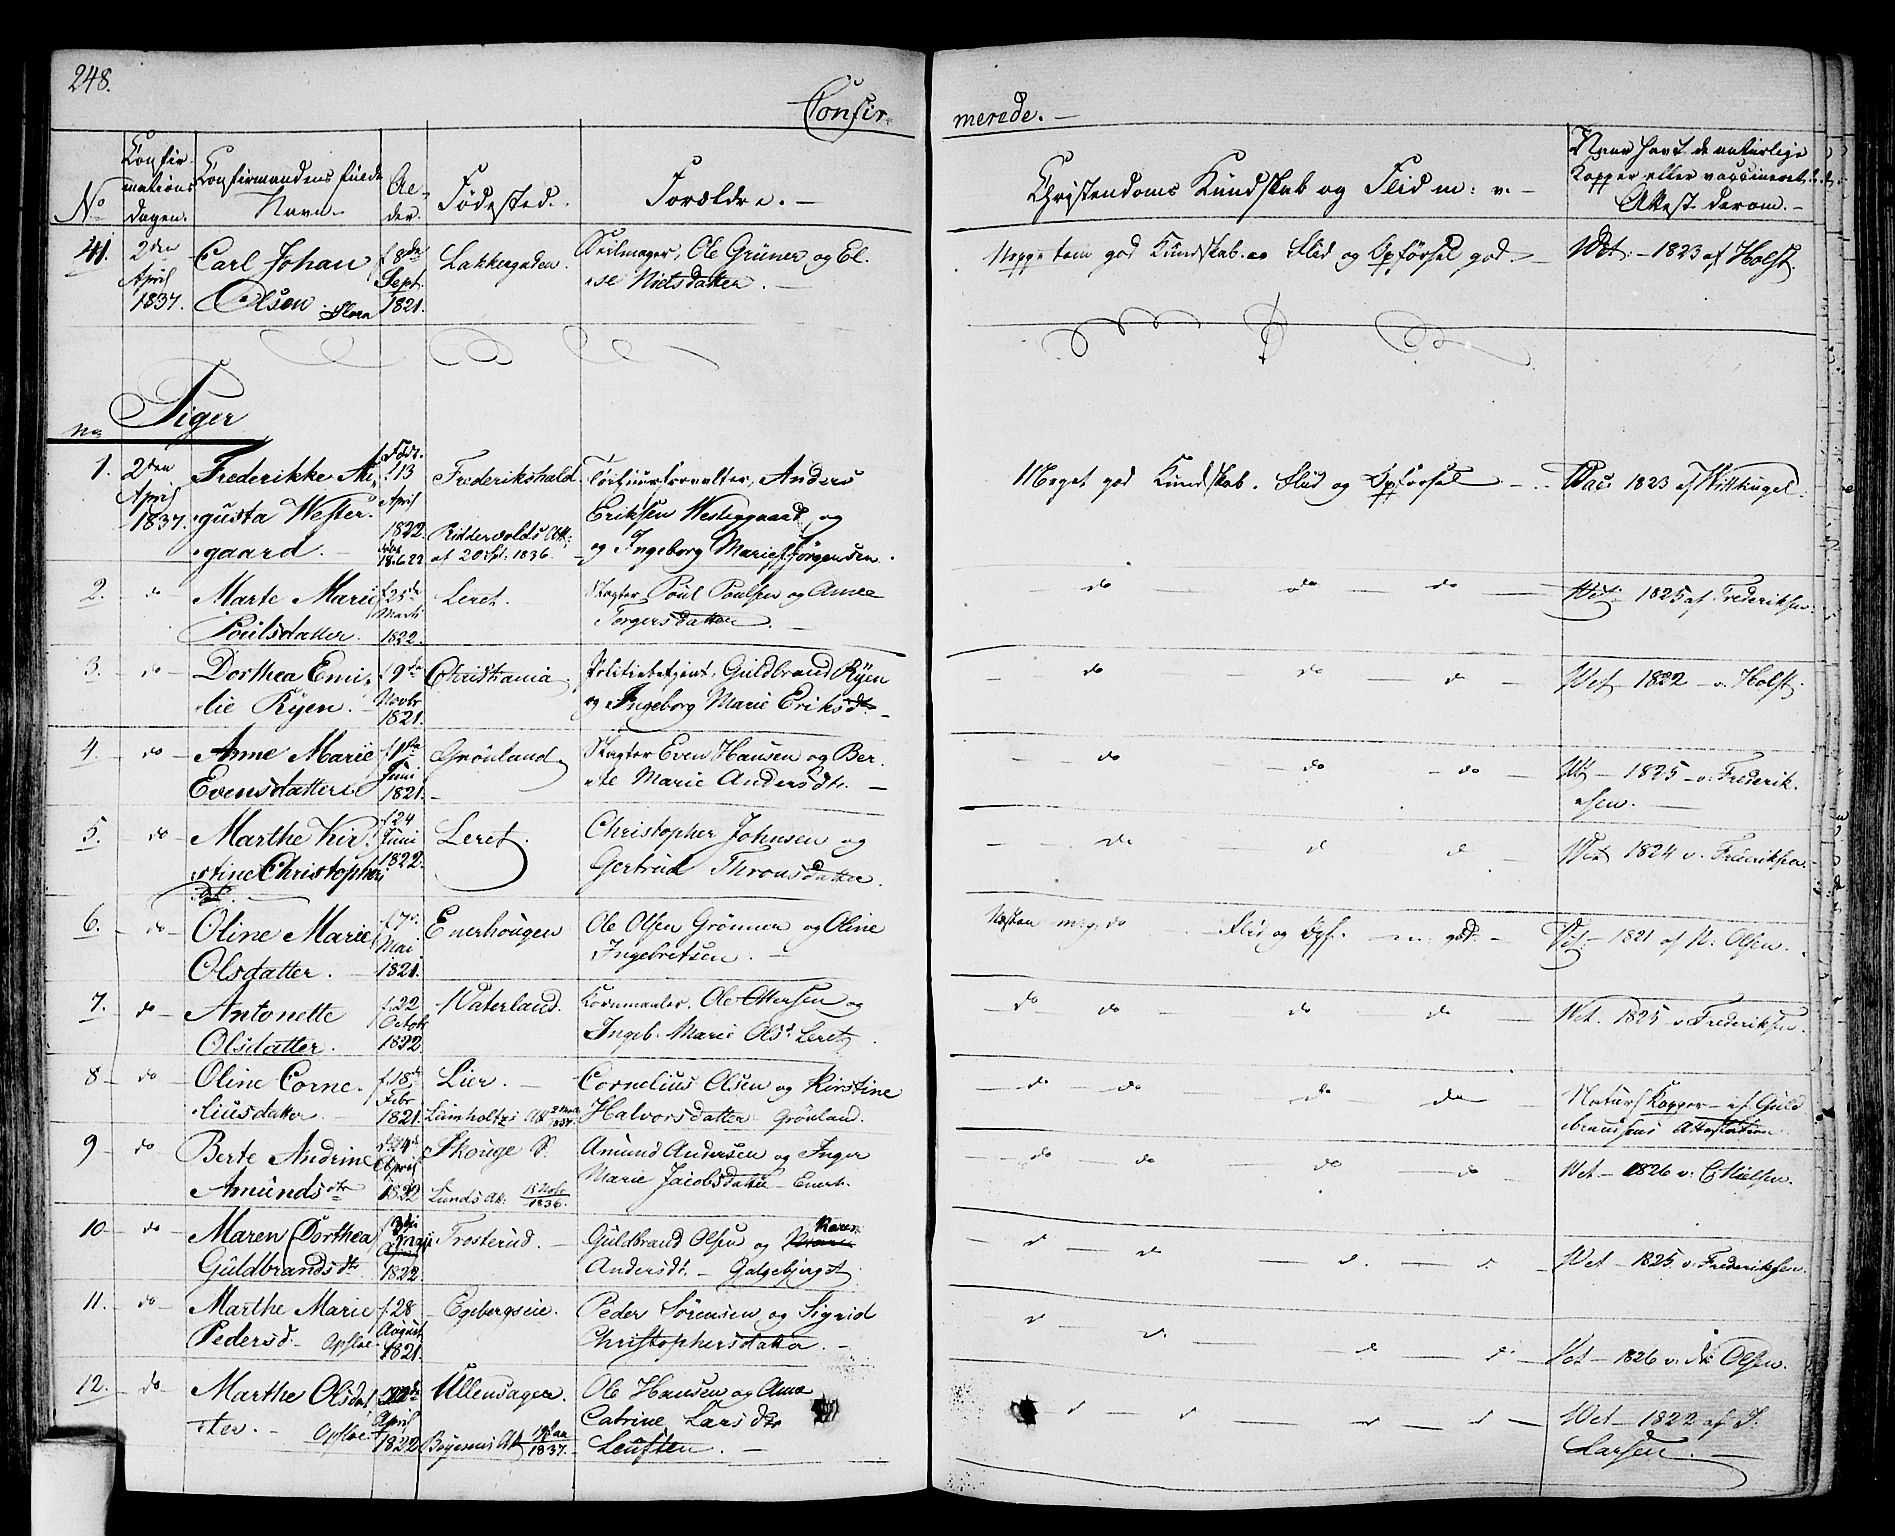 248.
Confir-
merede. -
No
Confir-
mations
Dagen.
Confirmandens fulde
Navn.
Al-
der.
Fødested.
Forældre. -
Christendoms Kundskab og Flid m: v. -
Naar havt de naturlige
Kopper eller vaccineret
Attest derom. -
41.
2den
April
1837.
Carl Johan
Olsen
f 8de
Sept.
1821.
Lakkergaden.
Seilmager, Ole Grüner og El-
se Nielsdatter. -
god Kundskab. Flid og Opførsel god -
1823 af Holst.
Piger
No
1.
2den
April
1837.
Frederikke Au-
gusta Wester-
gaard. -
13
April
1822
Frederikshald
Ridderwolds Att:
af 20 Spt: 1836.
Anders
Eriksen Westergaard og
og Ingeborg Marie Jørgensen.
Meget god Kundskab. Flid og Opførsel -
Vac 1823 af Wittkugel.
2.
do
Marte Marie
Poulsdatter.
f 25de
Marts
1822.
Leret.
Slagter Poul Poulsen og Anne
Torgersdatter. -
do do do
Vet 1825 af Frederiksen
3.
do
Dorthea Emi-
lie Ryen. -
f 9de
Novbr
1821.
Christiania.
Politiebetjent, Guldbrand Ryen
og Ingeborg Marie Eriksdt. -
do do d
Vet - 1822 - v. Holst.
4
do
Anne Marie
Evensdatter
f 1ste
Juni
1821.
Grönland
Slagter Even Hansen og Ber-
te Marie Andersdtr. -
do do do
1825 - v: Frederik-
sen. -
5.
do
Marthe Kir-
stine Christophers
dt.
f. 24
Juni
1822.
Leret.
Christopher Johnsen og
Gertrud Thronsdatter.
do d d
Vet 1824 v. Frederiksen
6.
do
Oline Marie
Olsdatter. -
f 7de
Mai
1821.
Enerhougen
Ole Olsen Grönner og Oline
Ingebretsen. -
Næsten m: g: do Flid og Opf. - m: god. -
Vet - 1821 af N: Olsen.
7.
do
Antonette
Olsdatter.
f. 22
Octob.
1822.
Vaterland.
Kornmaaler. Ole Ottersen og
Ingeb. Marie Olsdt Leret
do do do do
Vet. 1825 v Frederiksen.
8
do
Oline Corne-
liusdatter
f. 18de
Febr
1821.
Lier. -
Lumholtzs Att
1837.
Cornelius Olsen og Kirstine
Halvorsdatter Grönland.
do do do do
Naturl Kopper - af Guld
bransens Attestation
9
do
Berte Andrine
Amundsdtr
April
1822
Skouge S.
Lunds Att: 15 Nov. 1836.
Amund Andersen og Inger
Marie Jacobsdatter Enerh.
do do do do
Vet - 1826 v. C Nielsen.
10
do
Maren Dorthea
Guldbrandsdtr
3die
Maji
1822
Trosterud.
Guldbrand Olsen og Karen
Andersdt. - Galgebjerget
d d d d
Vet - 1825 v. Frederiksen.
11.
do
Marthe Marie
Pedersd. Opsloe
f. 28
August
1821.
Egebergseie.
Peder Sörensen og Sigrid
Christophersdatter. -
d d d d
Vet - 1826 v. N: Olsen.
12.
do
Marthe Olsdat-
ter. - Opsloe
April
1822
Ullensager.
1837.
Ole Hansen og Anne
Catrine Larsdtr
Leuften. -
d d d d
Vet - 1822 af J.
Larsen. -